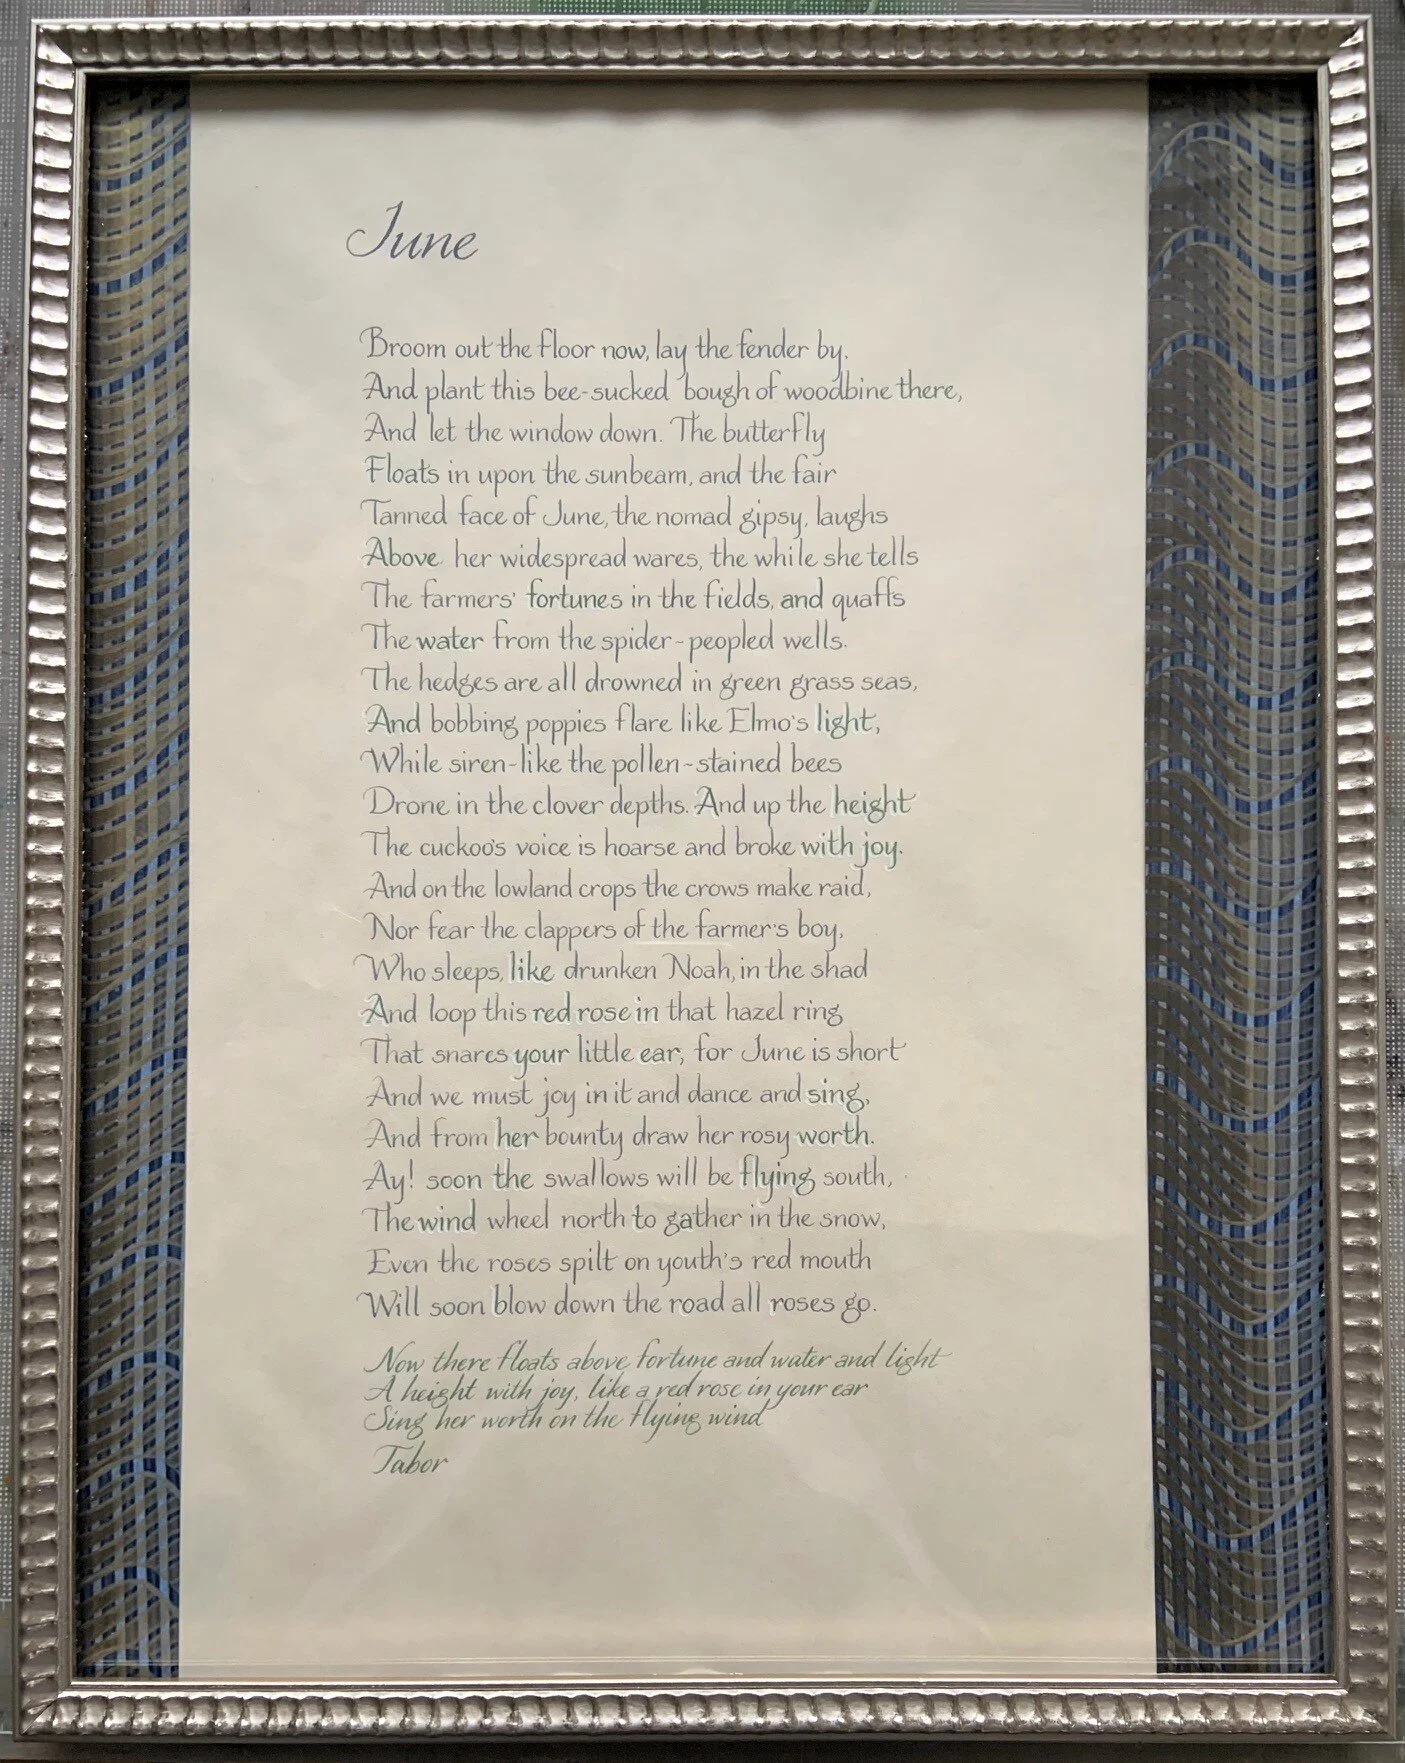 June
Broom out the floor now, lay the fender by.
And plant this bee-sucked bough of woodbine there,
And let the window down. The butterfly
Floats in upon the sunbeam, and the fair
Tanned face of June, the nomad gipsy, laughs
Above her widespread wares, the while she tells
The farmers' fortunes in the fields, and quaffs
The water from the spider-peopled wells.
The hedges are all drowned in green grass seas,
And bobbing poppies flare like Elmo's light,
While siren-like the pollen-stained bees
Drone in the clover depths. And up the height
The cuckoo's voice is hoarse and broke with joy.
And on the lowland crops the crows make raid,
Nor fear the clappers of the farmer's boy,
Who sleeps, like drunken Noah, in the shad
And loop this red rose in that hazel ring
That snares your little ear, for June is short
And we must joy in it and dance and sing,
And from her bounty draw her rosy worth.
Ay! soon the swallows will be flying south,
The wind wheel north to gather in the snow,
Even the roses spilt on youth's red mouth
Will soon blow down the road all roses go.
Now there floats above fortune and water and light
A height with joy, like a red rose in your ear
Sing her worth on the flying wind
Tabor